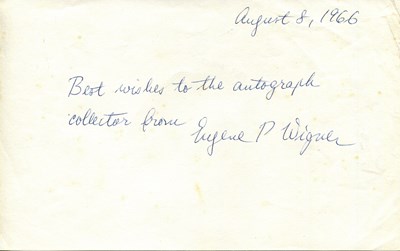 August 8, 1966
Best wishes to the autograph
collector from
Eugene P Wigner